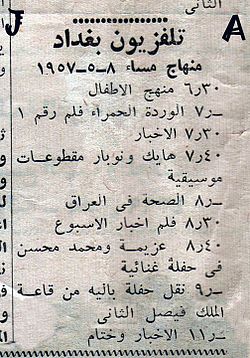 الثانى
J
A
تلفزيون بغداد
منهاج مساء ٨-٥-١٩٥٧
٦٫٣٠ منهج الاطفال
٧٫- الوردة الحمراء فلم رقم ١
٧٫٣٠ الاخبار
٧٫٤٠ هايك ونوبار مقطوعات
موسيقية
٨٫- الصحه فى العراق
٨٫٣٠ فلم اخبار الاسبوع
٨٫٤٠ عزيمة ومحمد محسن
فى حفلة غنائية
٩٫- نقل حفلة باليه من قاعة
الملك فيصل الثانى
١١٫- الاخبار وختام